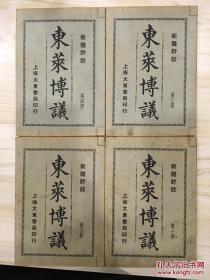 新體評註
第四冊
東萊博議
上海大東書局印行
新體評註
東萊博議
上海大東書局印行
新體評註
東萊博議
上海大東書局印行
新體評註
第一冊
東萊博議
上海大東書局印行